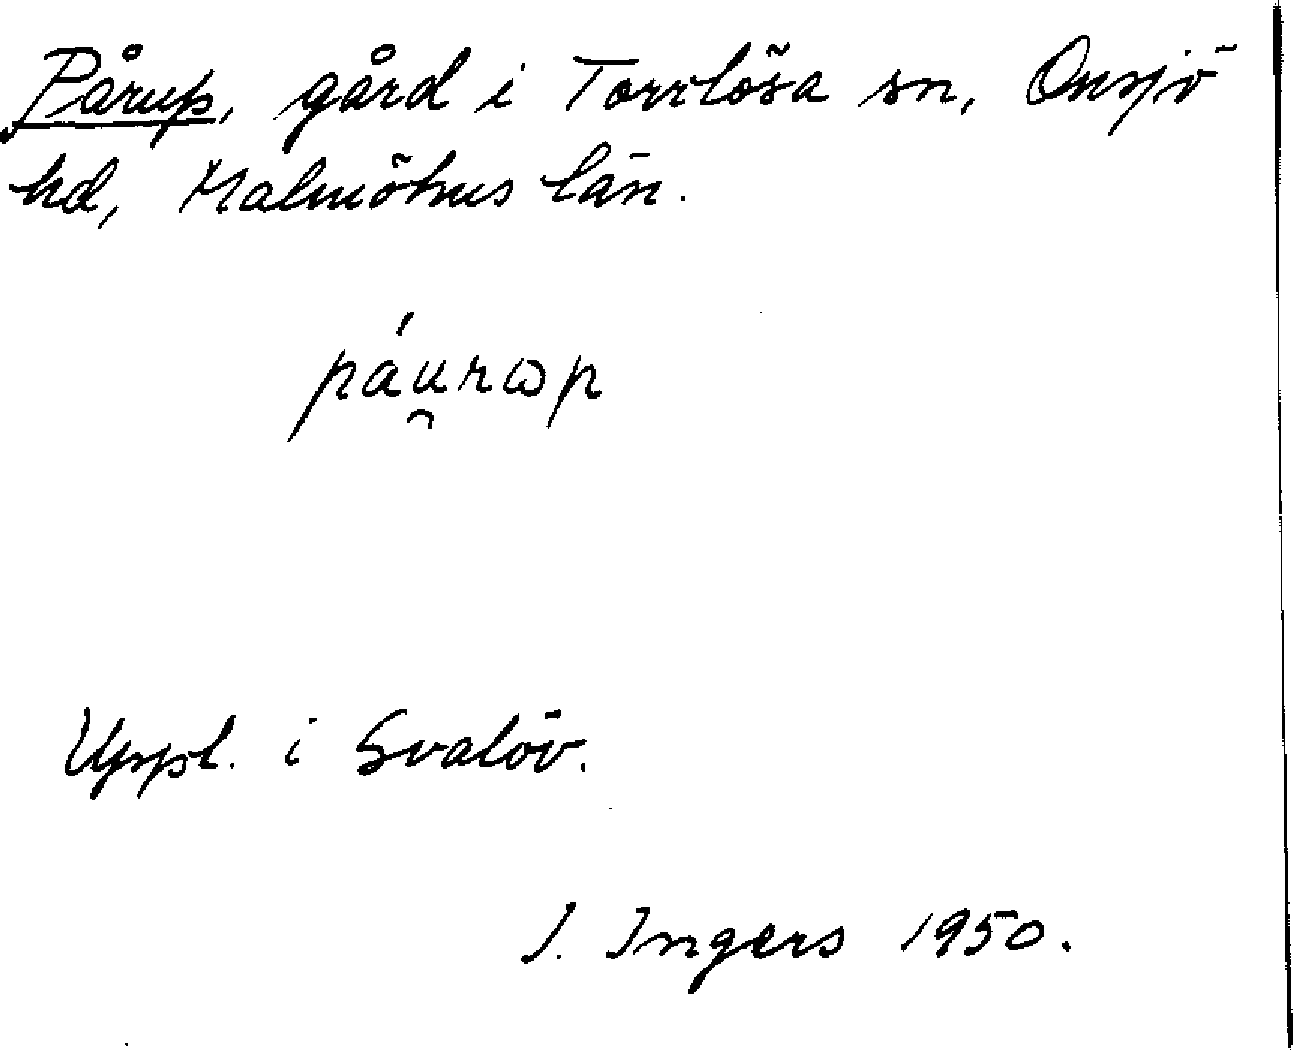 Pårup, gård i Torrlösa sn, Onsjö
hd, Malmöhus län.
páu̯rωp
Uppl. i Svalöv.
I. Ingers 1950.